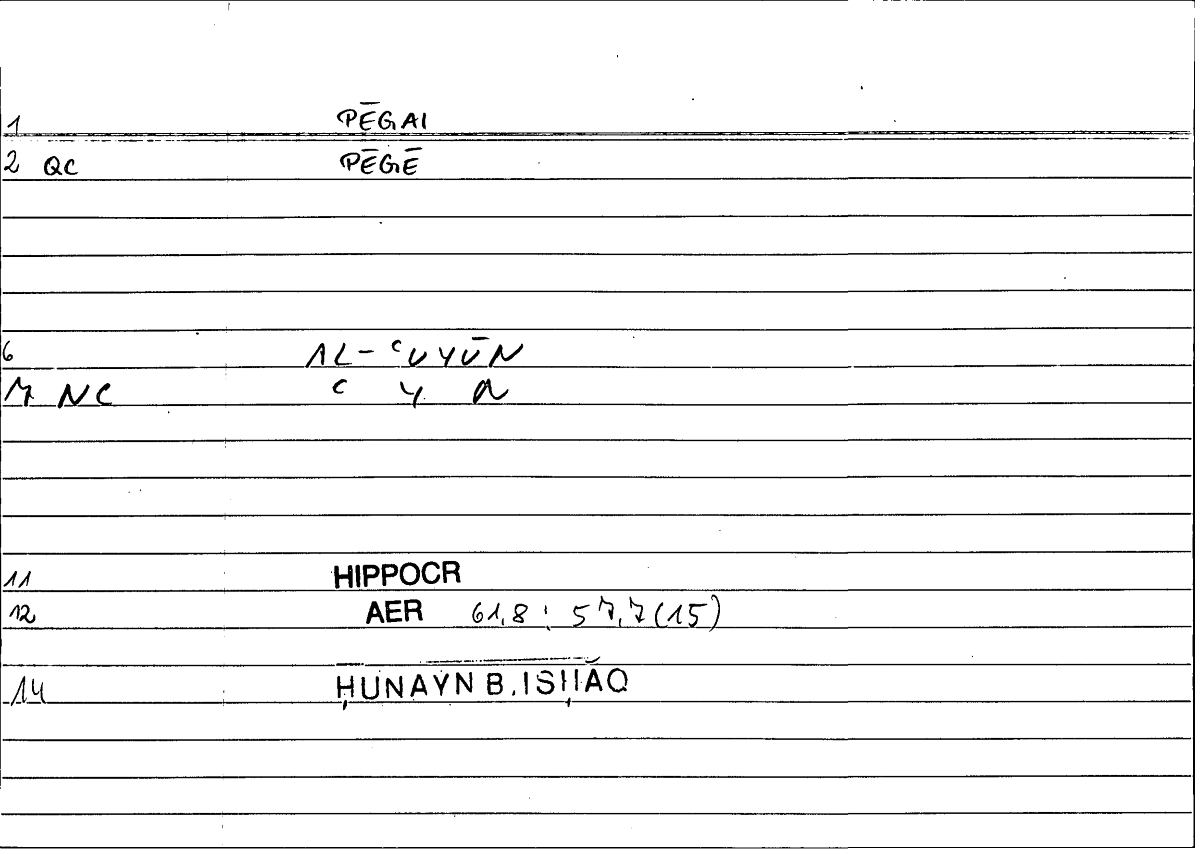 1 PĒGAI
2 QC PĒGĒ
6 AL-ʿUYŪN
7 NC ʿ Y N
11 HIPPOCR
12 AER 61,8 : 57,7 (15)
14 ḤUNAYN B. ISḤĀQ